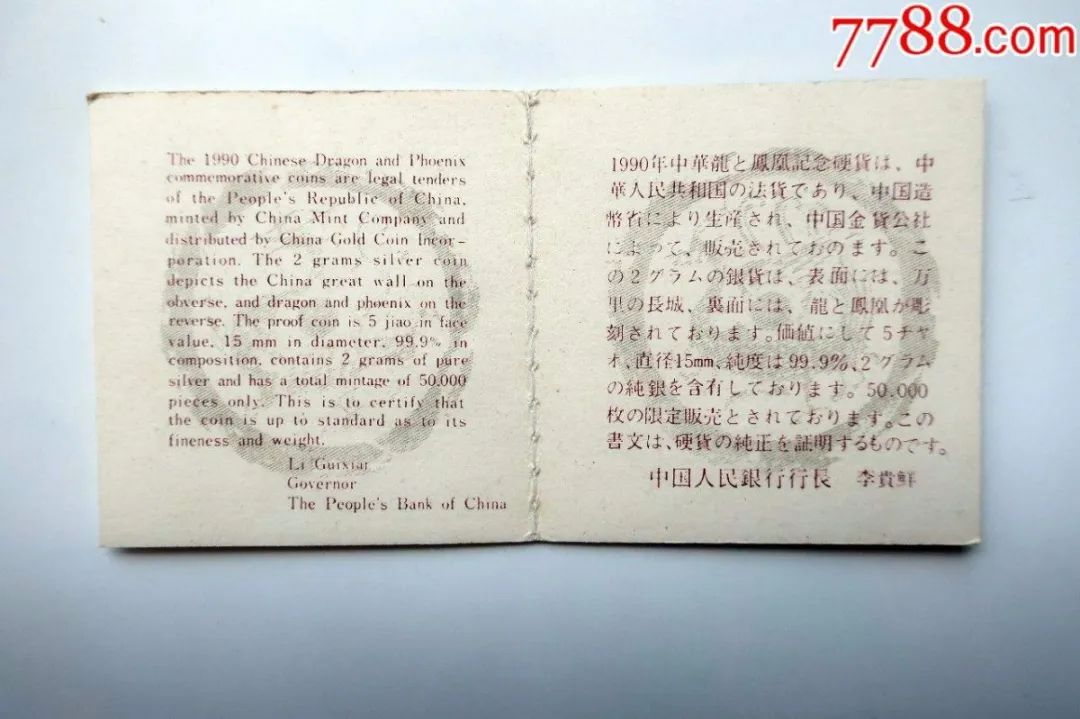 7788.com
The 1990 Chinese Dragon and Phoenix
commemorative coins are legal tenders
of the People's Republic of China,
minted by China Mint Company and
distributed by China Gold Coin Incor-
poration. The 2 grams silver coin
depicts the China great wall on the
obverse, and dragon and phoenix on the
reverse. The proof coin is 5 jiao in face
value, 15 mm in diameter, 99.9% in
composition, contains 2 grams of pure
silver and has a total mintage of 50,000
pieces only. This is to certify that
the coin is up to standard as to its
fineness and weight.
Li Guixian
Governor
The People's Bank of China
1990年中華龍と鳳凰記念硬貨は、中
華人民共和国の法貨であり、中国造
幣省により生産され、中国金貨公社
によって、販売されておのます。こ
の2グラムの銀貨は、表面には、万
里の長城、裏面には、龍と鳳凰が彫
刻されております。価値にして5チャ
オ、直径15mm、純度は99.9%、2グラム
の純銀を含有しております。50,000
枚の限定販売とされております。この
書文は、硬貨の純正を証明するものです。
中国人民銀行行長 李貴鮮